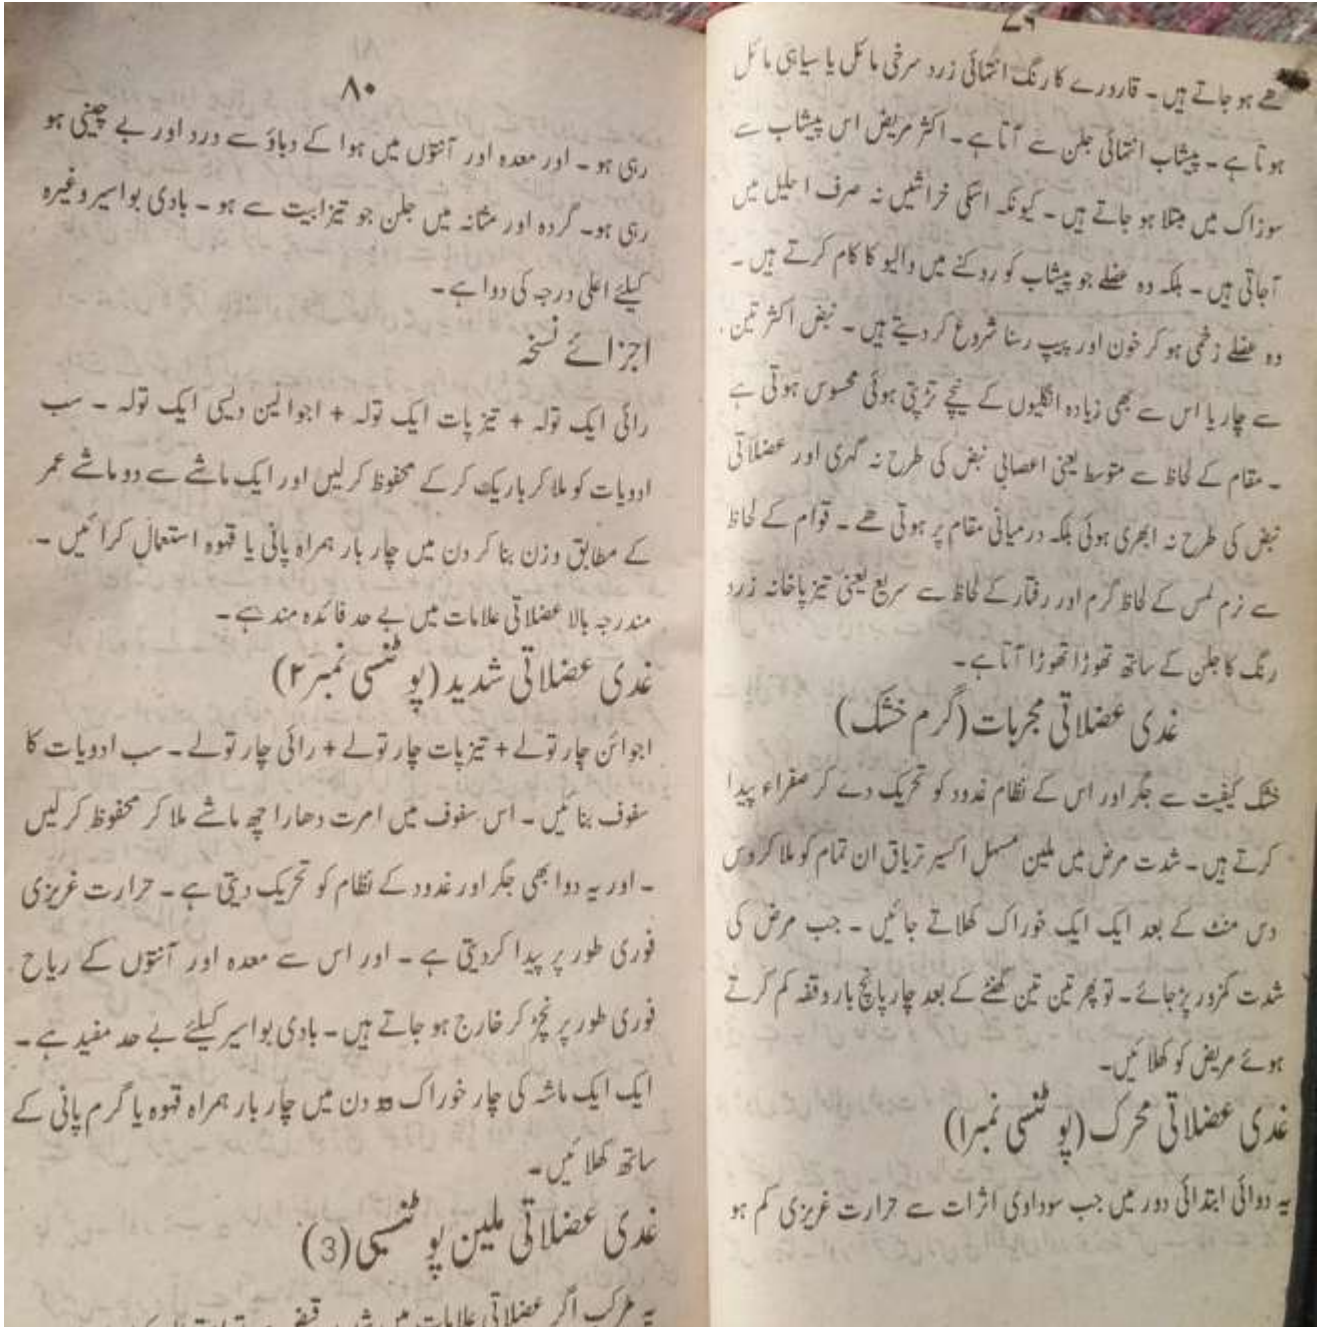 ۷۹
ھے ہو جاتے ہیں ۔ قارورے کا رنگ انتہائی زرد سرخی مائل یا سیاہی مائل
ہوتا ہے ۔ پیشاب انتہائی جلن سے آتا ہے ۔ اکثر مریض اس پیشاب سے
سوزاک میں مبتلا ہو جاتے ہیں ۔ کیونکہ اسکی خراشیں نہ صرف احلیل میں
آجاتی ہیں ۔ بلکہ وہ عضلے جو پیشاب کو روکنے میں والیو کا کام کرتے ہیں ۔
وہ عضلے زخمی ہو کر خون اور پیپ رسنا شروع کر دیتے ہیں ۔ نبض اکثر تین
سے چار یا اس سے بھی زیادہ انگلیوں کے نیچے تڑپتی ہوئی محسوس ہوتی ہے
۔ مقام کے لحاظ سے متوسط یعنی اعصابی نبض کی طرح نہ گہری اور عضلاتی
نبض کی طرح نہ ابھری ہوئی بلکہ درمیانی مقام پر ہوتی ھے ۔ قوام کے لحاظ
سے نرم لمس کے لحاظ گرم اور رفتار کے لحاظ سے سریع یعنی تیز پاخانہ زرد
رنگ کا جلن کے ساتھ تھوڑا تھوڑا آتا ہے ۔
غدی عضلاتی مجربات (گرم خشک)
خشک کیفیت سے جگر اور اس کے نظام غدود کو تحریک دے کر صفراء پیدا
کرتے ہیں ۔ شدت مرض میں ملین مسہل اکسیر تریاق ان تمام کو ملا کر دس
دس منٹ کے بعد ایک ایک خوراک کھلاتے جائیں ۔ جب مرض کی
شدت کمزور پڑجائے ۔ تو پھر تین تین گھنٹے کے بعد چار پانچ بار وقفہ کم کرتے
ہوئے مریض کو کھلائیں ۔
غدی عضلاتی محرک (پوٹنسی نمبر۱)
یہ دوائی ابتدائی دور میں جب سوداوی اثرات سے حرارت غریزی کم ہو
۸۰
رہی ہو ۔ اور معدہ اور آنتوں میں ہوا کے دباؤ سے درد اور بے چینی ہو
رہی ہو ۔ گردہ اور مثانہ میں جلن جو تیزابیت سے ہو ۔ بادی بواسیر وغیرہ
کیلئے اعلیٰ درجہ کی دوا ہے ۔
اجزائے نسخہ
رائی ایک تولہ + تیز پات ایک تولہ + اجوائین دیسی ایک تولہ ۔ سب
ادویات کو ملا کر باریک کر کے محفوظ کر لیں اور ایک ماشے سے دو ماشے عمر
کے مطابق وزن بنا کر دن میں چار بار ہمراہ پانی یا قہوہ استعمال کرائیں ۔
مندرجہ بالا عضلاتی علامات میں بے حد فائدہ مند ہے ۔
غدی عضلاتی شدید (پوٹنسی نمبر ۲)
اجوائن چار تولے + تیز پات چار تولے + رائی چار تولے ۔ سب ادویات کا
سفوف بنائیں ۔ اس سفوف میں امرت دھارا چھ ماشے ملا کر محفوظ کر لیں
۔ اور یہ دوا بھی جگر اور غدود کے نظام کو تحریک دیتی ہے ۔ حرارت غریزی
فوری طور پر پیدا کردیتی ہے ۔ اور اس سے معدہ اور آنتوں کے ریاح
فوری طور پر نچڑ کر خارج ہو جاتے ہیں ۔ بادی بواسیر کیلئے بے حد مفید ہے ۔
ایک ایک ماشہ کی چار خوراک دن میں چار بار ہمراہ قہوہ یا گرم پانی کے
ساتھ کھلائیں ۔
غدی عضلاتی ملین پوٹنسی (3)
یہ مرکب اگر عضلاتی علامات میں شدید قبض